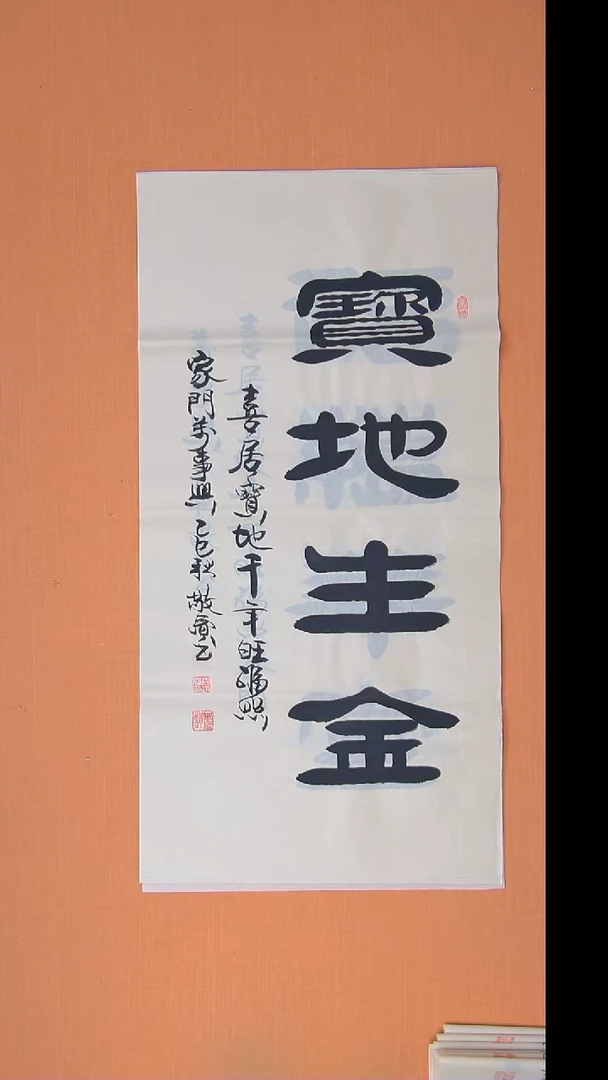 寶地生金
喜居寶地千年旺福照
家門萬事興乙巳秋敬書